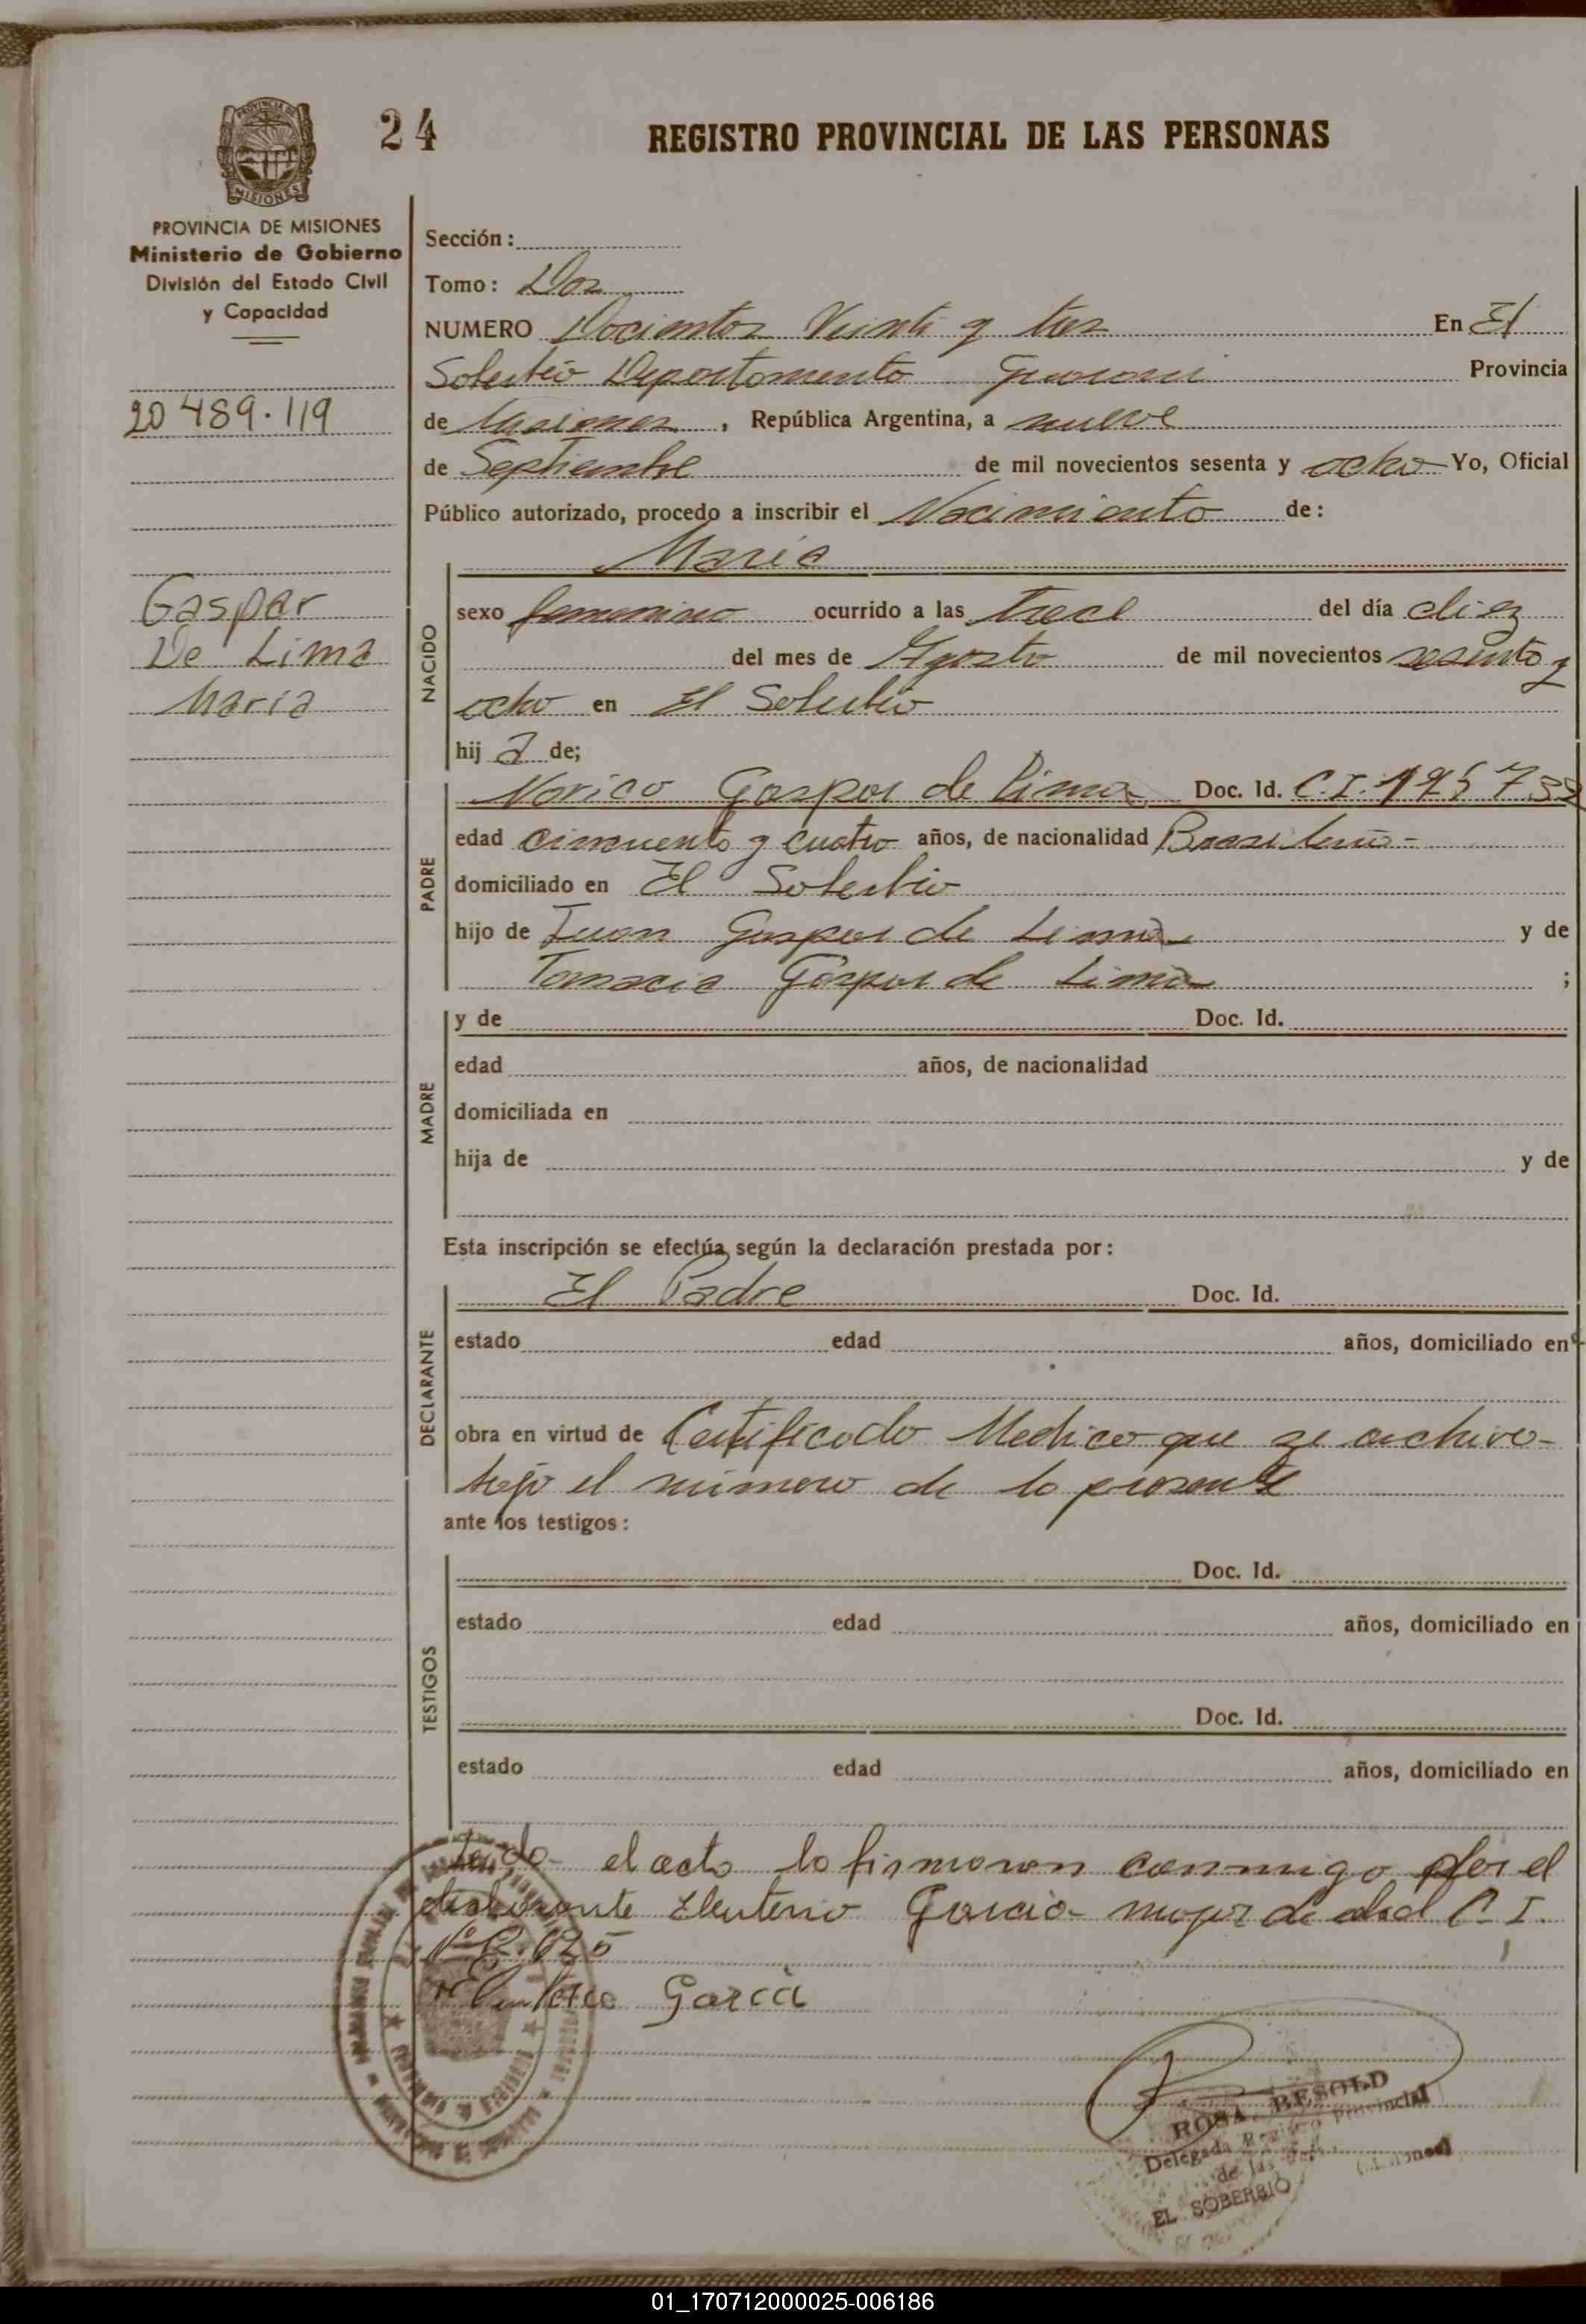 24
REGISTRO PROVINCIAL DE LAS PERSONAS
PROVINCIA DE MISIONES
MISIONES
PROVINCIA DE MISIONES
Ministerio de Gobierno
División del Estado Civil
y Capacidad
20 489.119
Gaspar
De Lima
Maria
Sección:
Tomo: Dos
NUMERO Docientos Veinti y tres En El
Soberbio Departamento Guarani Provincia
de Misiones, República Argentina, a nueve
de Septiembre de mil novecientos sesenta y ocho Yo, Oficial
Público autorizado, procedo a inscribir el Nacimiento de:
Maria
NACIDO
sexo femenino ocurrido a las trece del día diez
del mes de Agosto de mil novecientos sesenta y
ocho en El Soberbio
hij a de;
PADRE
Norico Gaspar de Lima Doc. Id. C.I.
edad cincuenta y cuatro años, de nacionalidad Brasileño-
domiciliado en El Soberbio
hijo de Juan Gaspar de Lima y de
Gaspar de Lima ;
MADRE
y de Doc. Id.
edad años, de nacionalidad
domiciliada en
hija de y de
Esta inscripción se efectúa según la declaración prestada por:
DECLARANTE
El Padre Doc. Id.
estado edad años, domiciliado en
obra en virtud de Certificado Medico que se archiva-
bajo el número de la presente
ante los testigos:
TESTIGOS
Doc. Id.
estado edad años, domiciliado en
Doc. Id.
estado edad años, domiciliado en
el acta la firmaron conmigo por el
declarante Eleuterio Garcia mayor de edad C.I.
Garcia
ROSA BESOLD
Delegada Registro Provincial
de las
EL SOBERBIO
01_170712000025-006186